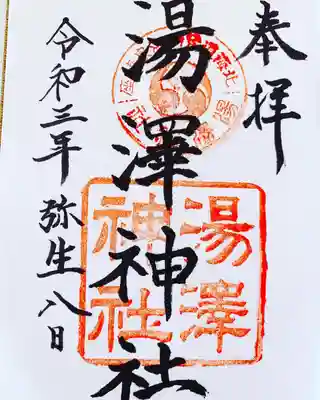 奉拝
湯澤神社
湯澤
神社
令和三年弥生八日